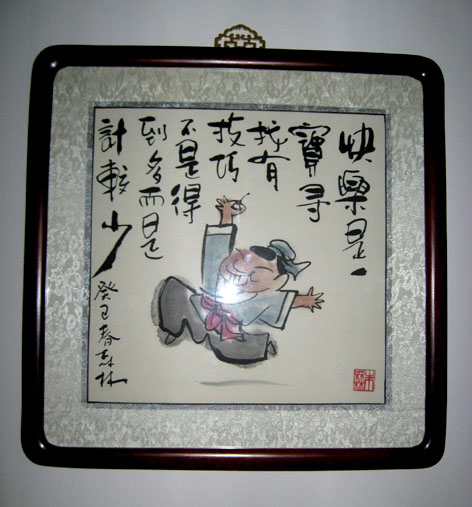 快樂是一
寶尋
找有
技巧
不是得
到多而是
計較少
癸巳春森林